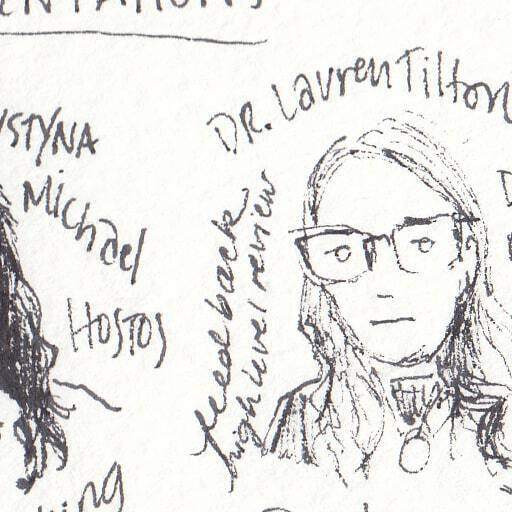 ENTATIONS
YSTYNA
Michael
HOSTOS
DR. Lauren Tilton
feedback
high level review
king